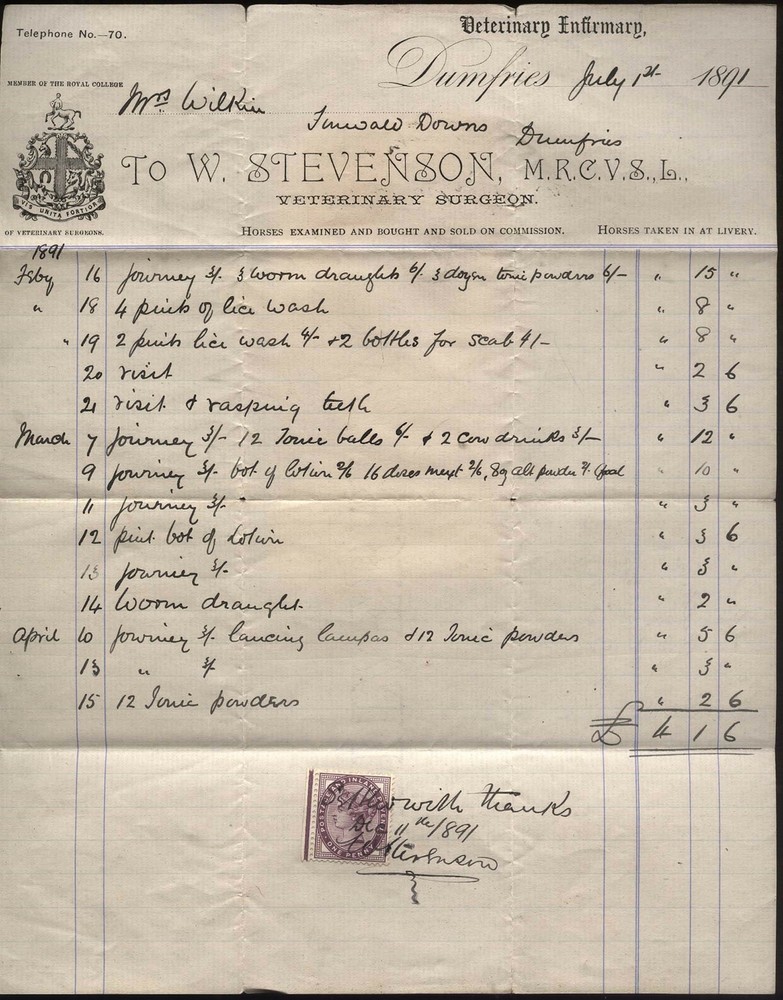 Telephone No.—70.
Veterinary Infirmary,
Dumfries July 1st 1891
MEMBER OF THE ROYAL COLLEGE
Mrs Wilkin
Tinwald Downs
Dumfries
To W. STEVENSON, M.R.C.V.S.,L.,
VETERINARY SURGEON.
VIS UNITA FORTIOR
OF VETERINARY SURGEONS.
HORSES EXAMINED AND BOUGHT AND SOLD ON COMMISSION. HORSES TAKEN IN AT LIVERY.
1891
Feby 16 Journey 3/- 3 worm draughts 6/- 3 dozen tonic powders 6/- " 15 "
" 18 4 pints of lice wash " 8 "
" 19 2 pints lice wash 4/- & 2 bottles for scab 4/- " 8 "
20 visit " 2 6
21 visit & rasping teeth " 3 6
March 7 Journey 3/- 12 Tonic balls 6/- & 2 cow drinks 3/- " 12 "
9 Journey 3/- bot of lotion 2/6 16 doses 2/6, alt powder " 10 "
11 Journey 3/- " 3 "
12 pint bot of Lotion " 3 6
13 Journey 3/- " 3 "
14 Worm draught " 2 "
April 10 Journey 3/- lancing lampas & 12 Tonic powders " 5 6
13 " 3/- " 3 "
15 12 Tonic powders " 2 6
£ 4 1 6
POSTAGE AND INLAND REVENUE
ONE PENNY
Settled with thanks
Dec 11th/1891
Stevenson